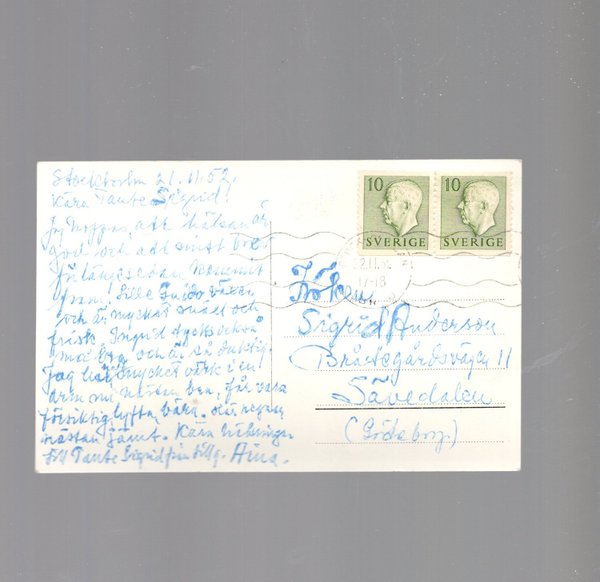 Stockholm 21.11.52.
Kära Tante Sigrid!
Jag hoppas, att hälsan är
god och att mitt brev
för länge sedan kommit
fram! Lille Guido växer
och är mycket snäll och
frisk. Ingrid tycks också
må bra och är så duktig.
Jag har mycket värk i en
arm nu utom ben, får vara
försiktig lyfta, bära. Det regnar
nästan jämt. Kära hälsningar
till Tante Sigrid från tillg. Aina.
10 10
SVERIGE SVERIGE
17-18
Fröken
Sigrid Anderson
11
Sävedalen
(Göteborg)